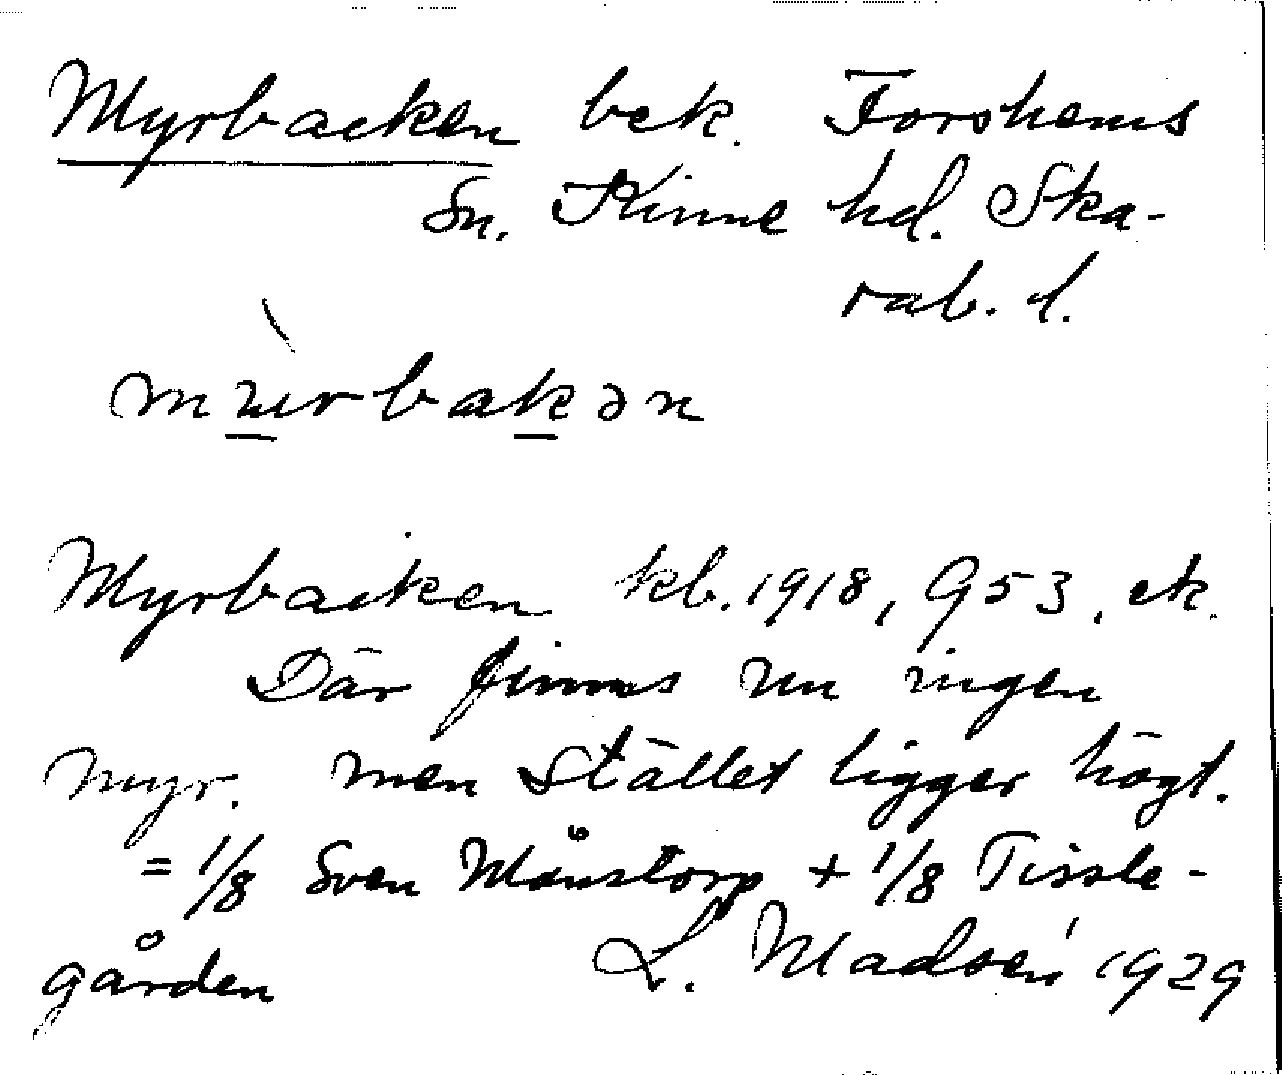 Myrbacken bek. Forshems
Sn. Kinne hd. Ska-
rab. l.
mɯ̀rbakən
Myrbacken kb. 1918, 953, ek.
Där finns nu ingen
myr. men stället ligger högt.
= 1/8 Sven Månstorp + 1/8 Tissle-
gården L. Madsén 1929